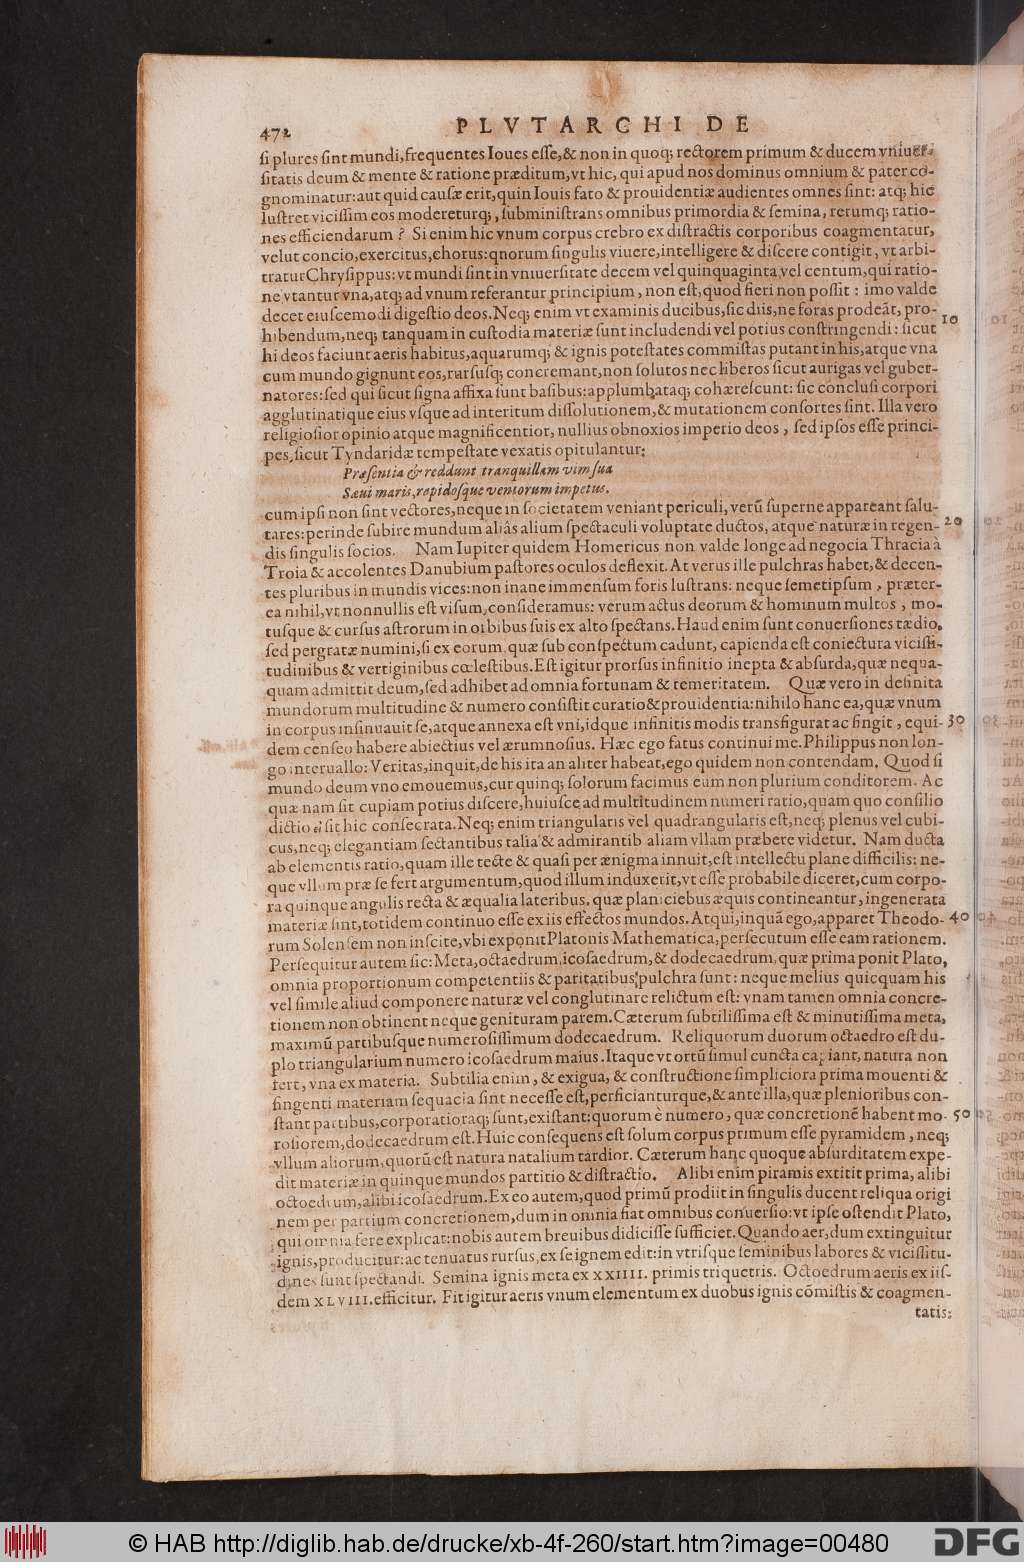 472 PLVTARCHI DE
si plures sint mundi, frequentes Ioues esse, & non in quoq; rectorem primum & ducem vniuer-
sitatis deum & mente & ratione præditum, vt hic, qui apud nos dominus omnium & pater co-
gnominatur: aut quid causæ erit, quin Iouis fato & prouidentiæ audientes omnes sint: atq; hic
lustret vicissim eos modereturq;, subministrans omnibus primordia & semina, rerumq; ratio-
nes efficiendarum? Si enim hic vnum corpus crebro ex distractis corporibus coagmentatur,
velut concio, exercitus, chorus: quorum singulis viuere, intelligere & discere contigit, vt arbi-
tratur Chrysippus: vt mundi sint in vniuersitate decem vel quinquaginta vel centum, qui ratio-
ne vtantur vna, atq; ad vnum referantur principium, non est, quod fieri non possit: imo valde
decet eiuscemodi digestio deos. Neq; enim vt examinis ducibus, sic diis, ne foras prodeãt, pro-
10
hibendum, neq; tanquam in custodia materiæ sunt includendi vel potius constringendi: sicut
hi deos faciunt aeris habitus, aquarumq; & ignis potestates commistas putant in his, atque vna
cum mundo gignunt eos, rursusq; concremant, non solutos nec liberos sicut aurigas vel guber-
natores: sed qui sicut signa affixa sunt basibus: applumbataq; cohærescunt: sic conclusi corpori
agglutinatique eius vsque ad interitum dissolutionem, & mutationem consortes sint. Illa vero
religiosior opinio atque magnificentior, nullius obnoxios imperio deos, sed ipsos esse princi-
pes, sicut Tyndaridæ tempestate vexatis opitulantur;
Præsentia & reddunt tranquillam vim sua
Sæui maris, rapidosque ventorum impetus.
cum ipsi non sint vectores, neque in societatem veniant periculi, verũ superne appareant salu-
tares: perinde subire mundum aliâs alium spectaculi voluptate ductos, atque naturæ in regen- 20
dis singulis socios. Nam Iupiter quidem Homericus non valde longe ad negocia Thracia à
Troia & accolentes Danubium pastores oculos deflexit. At verus ille pulchras habet, & decen-
tes pluribus in mundis vices: non inane immensum foris lustrans: neque semetipsum, præter-
ea nihil, vt nonnullis est visum, consideramus: verum actus deorum & hominum multos, mo-
tusque & cursus astrorum in orbibus suis ex alto spectans. Haud enim sunt conuersiones tædio,
sed pergratæ numini, si ex eorum, quæ sub conspectum cadunt, capienda est coniectura vicissi-
tudinibus & vertiginibus cœlestibus. Est igitur prorsus infinitio inepta & absurda, quæ nequa-
quam admittit deum, sed adhibet ad omnia fortunam & temeritatem. Quæ vero in definita
mundorum multitudine & numero consistit curatio & prouidentia: nihilo hanc ea, quæ vnum
in corpus insinuauit se, atque annexa est vni, idque infinitis modis transfigurat ac fingit, equi- 30
dem censeo habere abiectius vel ærumnosius. Hæc ego fatus continui me. Philippus non lon-
go interuallo: Veritas, inquit, de his ita an aliter habeat, ego quidem non contendam. Quod si
mundo deum vno emouemus, cur quinq; solorum facimus eum non plurium conditorem. Ac
quæ nam sit cupiam potius discere, huiusce ad multitudinem numeri ratio, quam quo consilio
dictio ei sit hic consecrata. Neq; enim triangularis vel quadrangularis est, neq; plenus vel cubi-
cus, neq; elegantiam sectantibus talia & admirantib aliam vllam præbere videtur. Nam ducta
ab elementis ratio, quam ille tecte & quasi per ænigma innuit, est intellectu plane difficilis: ne-
que vllum præ se fert argumentum, quod illum induxerit, vt esse probabile diceret, cum corpo-
ra quinque angulis recta & æqualia lateribus, quæ planiciebus æquis contineantur, ingenerata
materiæ sint, totidem continuo esse ex iis effectos mundos. Atqui, inquã ego, apparet Theodo- 40
rum Solensem non inscite, vbi exponit Platonis Mathematica, persecutum esse eam rationem.
Persequitur autem sic: Meta, octaedrum, icosaedrum, & dodecaedrum, quæ prima ponit Plato,
omnia proportionum competentiis & paritatibus pulchra sunt: neque melius quicquam his
vel simile aliud componere naturæ vel conglutinare relictum est: vnam tamen omnia concre-
tionem non obtinent neque genituram parem. Cæterum subtilissima est & minutissima meta,
maximũ partibusque numerosissimum dodecaedrum. Reliquorum duorum octaedro est du-
plo triangularium numero icosaedrum maius. Itaque vt ortũ simul cuncta capiant, natura non
fert, vna ex materia. Subtilia enim, & exigua, & constructione simpliciora prima mouenti &
fingenti materiam sequacia sint necesse est, perficianturque, & ante illa, quæ plenioribus con-
stant partibus, corporatioraq; sunt, existant: quorum è numero, quæ concretionẽ habent mo- 50
rosiorem, dodecaedrum est. Huic consequens est solum corpus primum esse pyramidem, neq;
vllum aliorum, quorũ est natura natalium tardior. Cæterum hanc quoque absurditatem expe-
dit materiæ in quinque mundos partitio & distractio. Alibi enim piramis extitit prima, alibi
octoedrum, alibi icosaedrum. Ex eo autem, quod primũ prodiit in singulis ducent reliqua origi
nem per partium concretionem, dum in omnia fiat omnibus conuersio: vt ipse ostendit Plato,
qui omnia fere explicat: nobis autem breuibus didicisse sufficiet. Quando aer, dum extinguitur
ignis, producitur: ac tenuatus rursus, ex se ignem edit: in vtrisque seminibus labores & vicissitu-
dines sunt spectandi. Semina ignis meta ex XXIIII. primis triquetris. Octoedrum aeris ex iis-
dem XLVIII. efficitur. Fit igitur aeris vnum elementum ex duobus ignis cõmistis & coagmen-
tatis:
© HAB http://diglib.hab.de/drucke/xb-4f-260/start.htm?image=00480
DFG